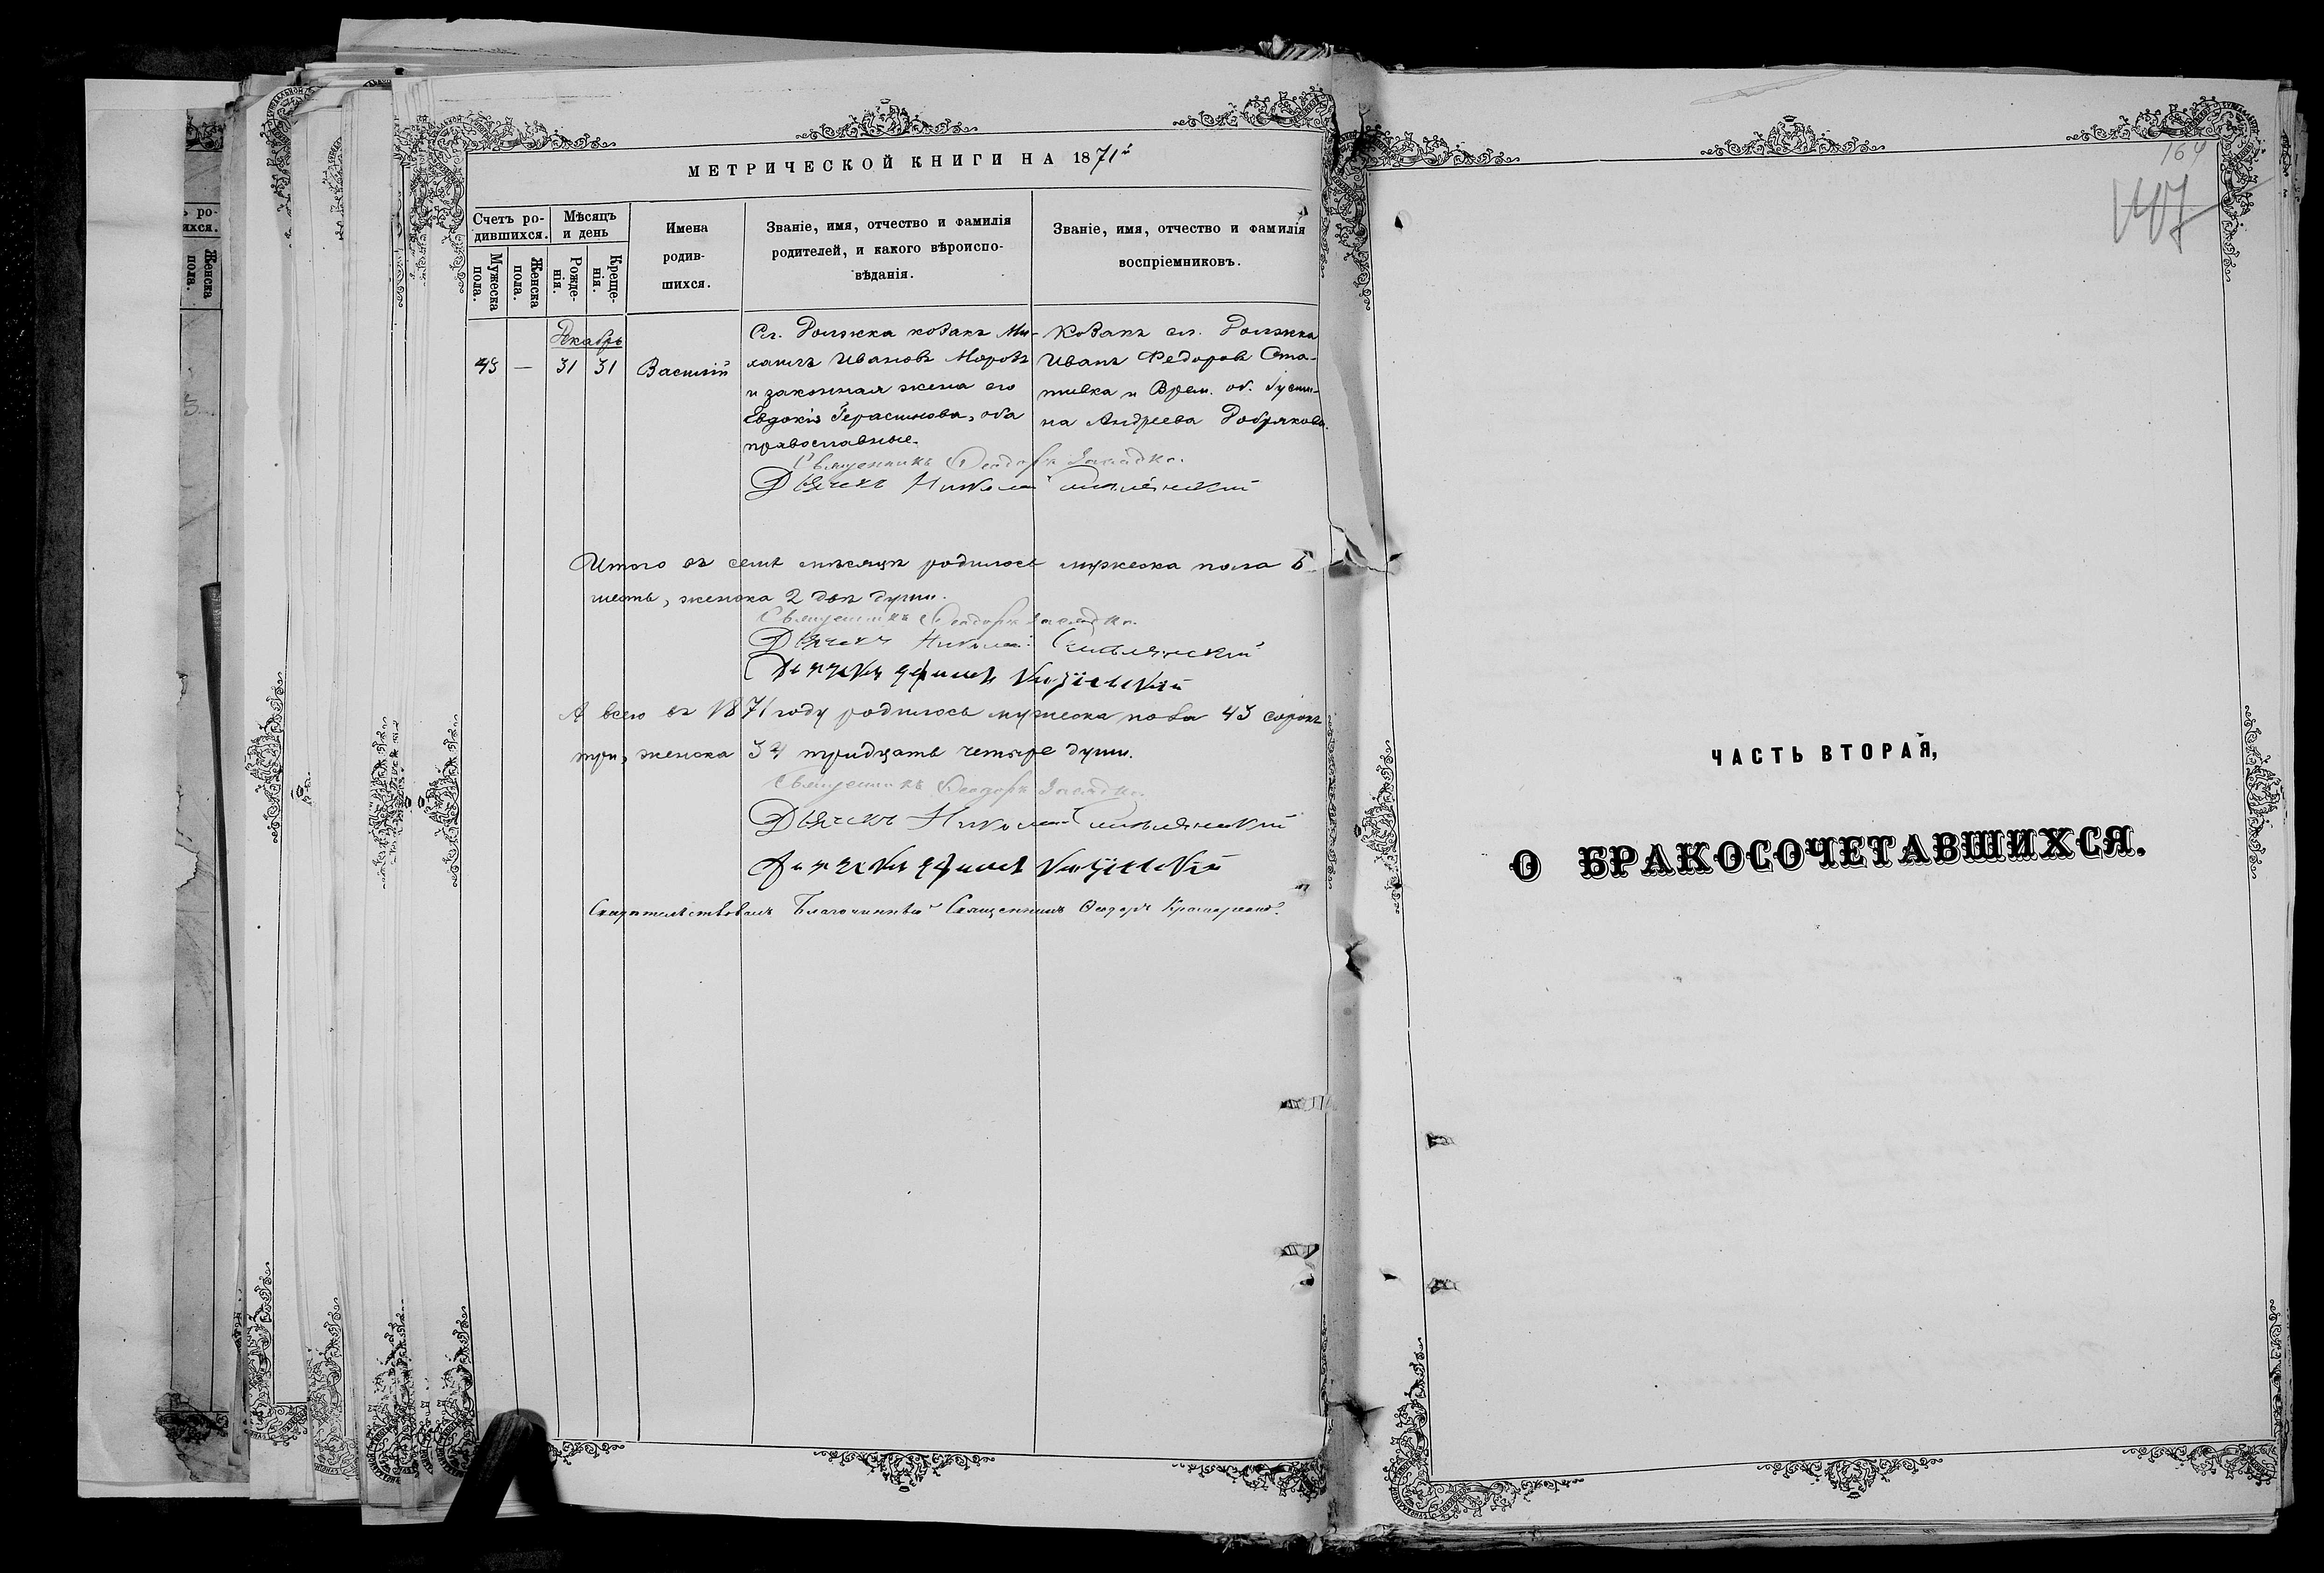 МЕТРИЧЕСКОЙ КНИГИ НА 1871й
Счетъ ро-
дившихся.
Мѣсяцъ
и день
Мужеска пола.
Женска пола.
Рожде-
нія.
Креще-
нія.
Имена
родив-
шихся.
Званіе, имя, отчество и фамилія
родителей, и какого вѣроиспо-
вѣданія.
Званіе, имя, отчество и фамилія
воспріемниковъ.
Декабрь
43 — 31 31 Василій
Сл. Должка козакъ Ми-
хаилъ Ивановъ Моровъ
и законная жена его
Евдокія Герасимова, оба
православные.
Козакъ сл. Должка
Иванъ Федоровъ Ста-
тивка и Врем. об. Іусти-
на Андреева Добрякова.
Священникъ Ѳеодоръ
Дьячекъ Николай
Итого въ семъ мѣсяцѣ родилось мужеска пола 6
шесть, женска 2 двѣ души.
Священникъ Ѳеодоръ
Дьячекъ Николай
А всего въ 1871 году родилось мужеска пола 43 сорокъ
три, женска 34 тридцать четыре души.
Священникъ Ѳеодоръ
Дьячекъ Николай
Свидѣтельствовалъ Благочинный Священникъ Ѳеодоръ
164
ЧАСТЬ ВТОРАЯ,
О БРАКОСОЧЕТАВШИХСЯ.